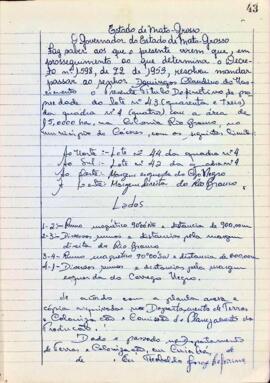 43
Estado de Mato-Grosso
O Governador do Estado de Mato-Grosso
Faz saber aos que o presente virem que, em
prosseguimento ao que determina o Decre-
to nº 1.598, de 22 de 1953, resolveu mandar
passar ao senhor Domingos Claudino do Nas-
cimento o presente Titulo Definitivo de pro-
priedade do lote nº 43 (quarenta e tres)
da quadra nº 4 (quatro) com a área de
ha, na Colonia Rio Branco, no
municipio de Cáceres, com os seguintes limites:
Ao Norte:- Lote nº 44 da quadra nº 4
Ao Sul:- Lote nº 42 da quadra nº 4
Ao Oeste:- Margem esquerda do Cgo Negro
A Leste:- Margem direita do Rio Branco
Lados
1-2:- Rumo magnético e distancia de
2-3:- Diversos rumos e distancias pela margem
direita do Rio Branco
3-4:- Rumo magnético e distancia de
4-1:- Diversos rumos e distancias pela margem
esquerda do Corrego Negro.
de acordo com a planta anexa e
cópia arquivadas no Departamento de Terras
e Colonização e Comissão de Planejamento da
Produção.
Dado e passado no Departamento
de Terras e Colonização, em Cuiabá,
de Eu